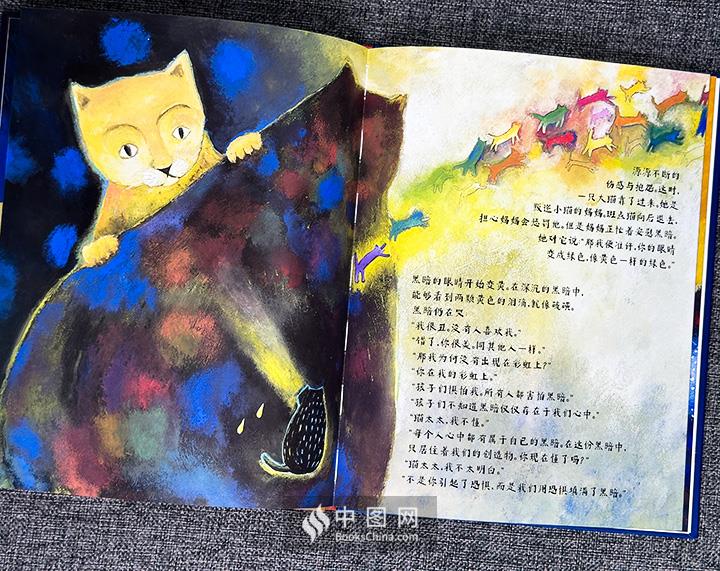 源源不断的
伤感与抱怨。这时,
一只大猫靠了过来。她是
叛逆小猫的妈妈。猫向后退去,
担心妈妈会惩罚他。但是妈妈正忙着安慰黑暗。
她对它说:“那我便准许,你的眼睛
变成绿色,像黄色一样的绿色。”
黑暗的眼睛开始变黄。在深沉的黑暗中,
能够看到两颗黄色的泪滴,就像硫磺。
黑暗仍在哭:
“我很丑。没有人喜欢我。”
“错了,你很美。同其他人一样。”
“那我为何没有出现在彩虹上?”
“你在我的彩虹上。”
“孩子们惧怕我。所有人都害怕黑暗。”
“孩子们不知道黑暗仅仅存在于我们心中。”
“猫太太,我不懂。”
“每个人心中都有属于自己的黑暗。在这份黑暗中,
只居住着我们的创造物。你现在懂了吗?”
“猫太太,我不太明白。”
“不是你引起了恐惧,而是我们用恐惧填满了黑暗。”
中图网
BooksChina.com